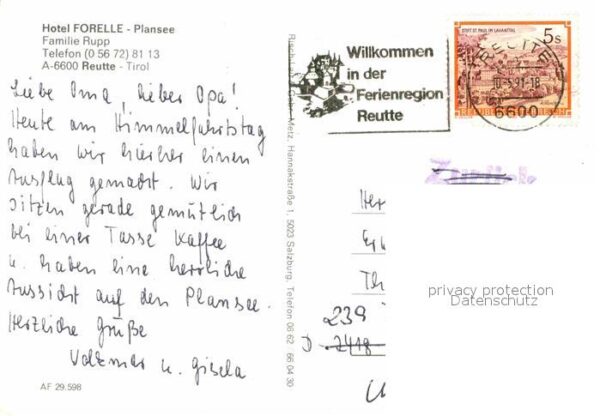 Hotel FORELLE - Plansee
Familie Rupp
Telefon (0 56 72) 81 13
A-6600 Reutte - Tirol
Liebe Oma, lieber Opa!
Heute am Himmelfahrtstag
haben wir hierher einen
Ausflug gemacht. Wir
sitzen gerade gemütlich
bei einer Tasse Kaffee
u. haben eine herrliche
Aussicht auf den Plansee.
Herzliche Grüße
Volkmar u. Gisela
AF 29.598
Metz, Hannakstraße 1, 5023 Salzburg, Telefon 06 62 66 04 30
Willkommen
in der
Ferienregion
Reutte
STIFT ST. PAUL IM LAVANTTAL
5s
REUTTE
6600
REPUBLIK
Zurück
Her
Th
239
D-7418
privacy protection
Datenschutz